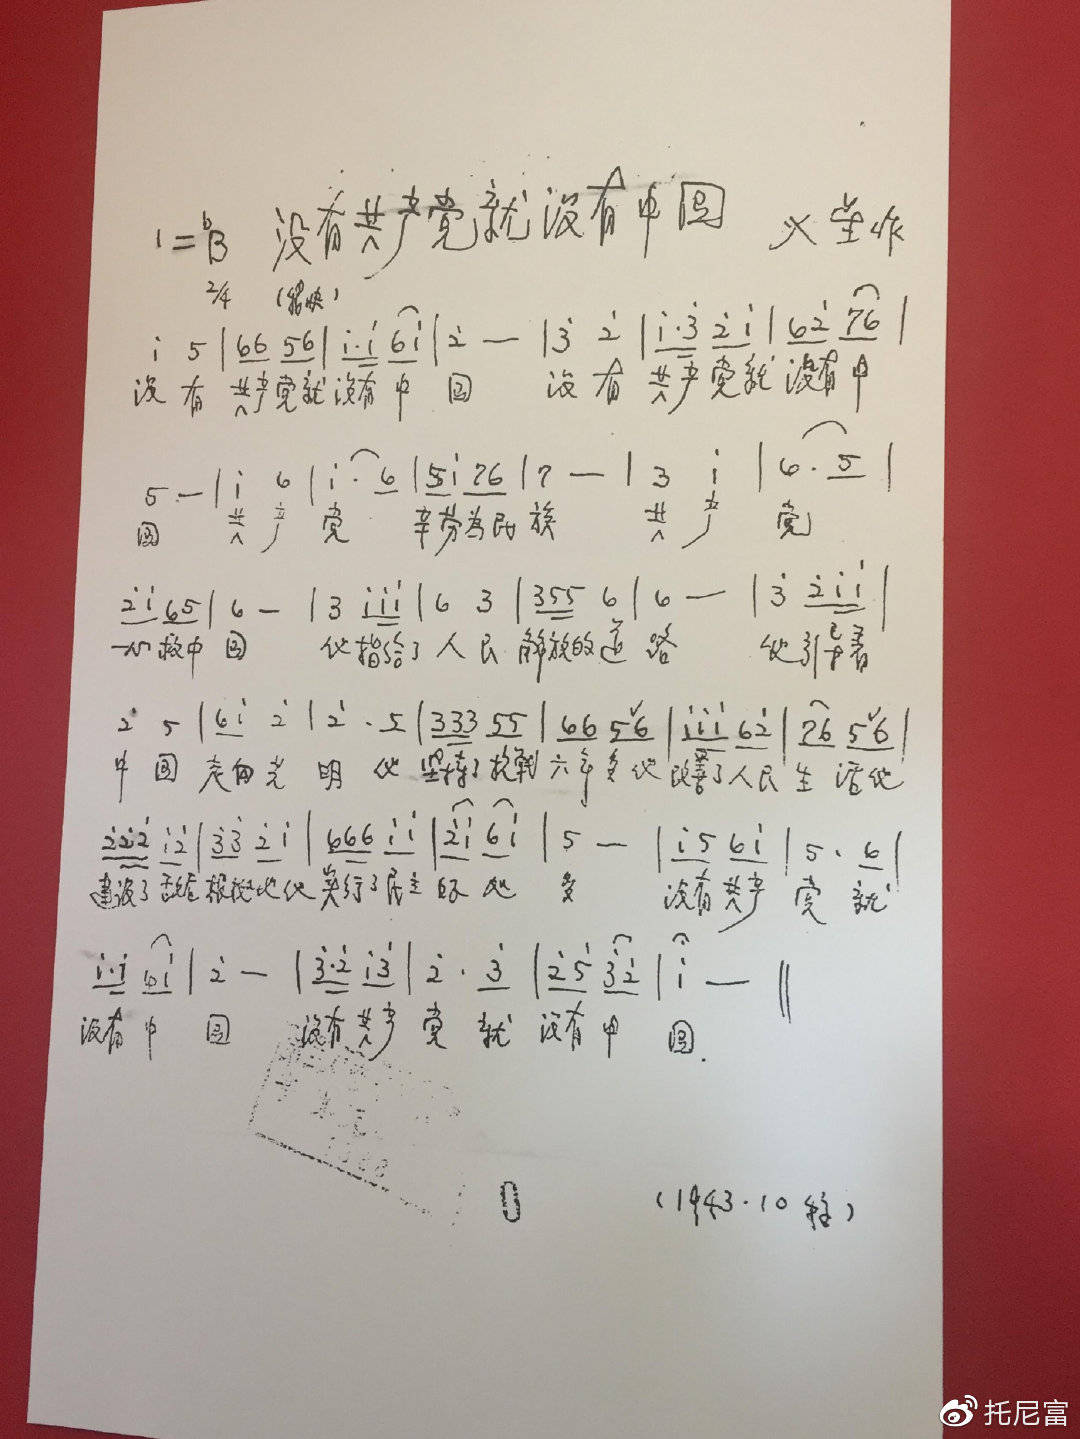 1=ᵇB 没有共产党就没有中国 火星作
2/4 (稍快)
i̇ 5 | 66 56 | i̇·i̇ 6i̇ | 2̇ — | 3̇ 2̇ | i̇·3̇ 2̇i̇ | 62̇ 76 |
没有 共产党就没有中 国 没有 共产党就没有中
5 — | i̇ 6 | i̇·6 | 5i̇ 76 | 7 — | 3 i̇ | 6·5 |
国 共产 党 辛劳为民族 共产 党
2̇i̇ 65 | 6 — | 3 i̇i̇i̇ | 6 3 | 355 6 | 6 — | 3̇ 2̇i̇i̇ |
一心救中国 他指给了人民 解放的道路 他引导着
2̇ 5 | 6i̇ 2̇ | 2̇·5 | 333 55 | 66 5ˇ6 | i̇i̇i̇ 62̇ | 76 5ˇ6 |
中国走向光明 他坚持了抗战六年多他改善了人民生活他
2̇2̇2̇ i̇2̇ | 3̇3̇ 2̇i̇ | 666 i̇i̇ | 2̇i̇ 6i̇ | 5 — | i̇5 6i̇ | 5·6 |
建设了敌后根据地他实行了民主好处多 没有共产党就
i̇·i̇ 6i̇ | 2̇ — | 3̇·2̇ i̇3̇ | 2̇·3̇ | 2̇5̇ 3̇2̇ | i̇ — ‖
没有中国 没有共产党就没有中国.
(1943·10 稿)
托尼富